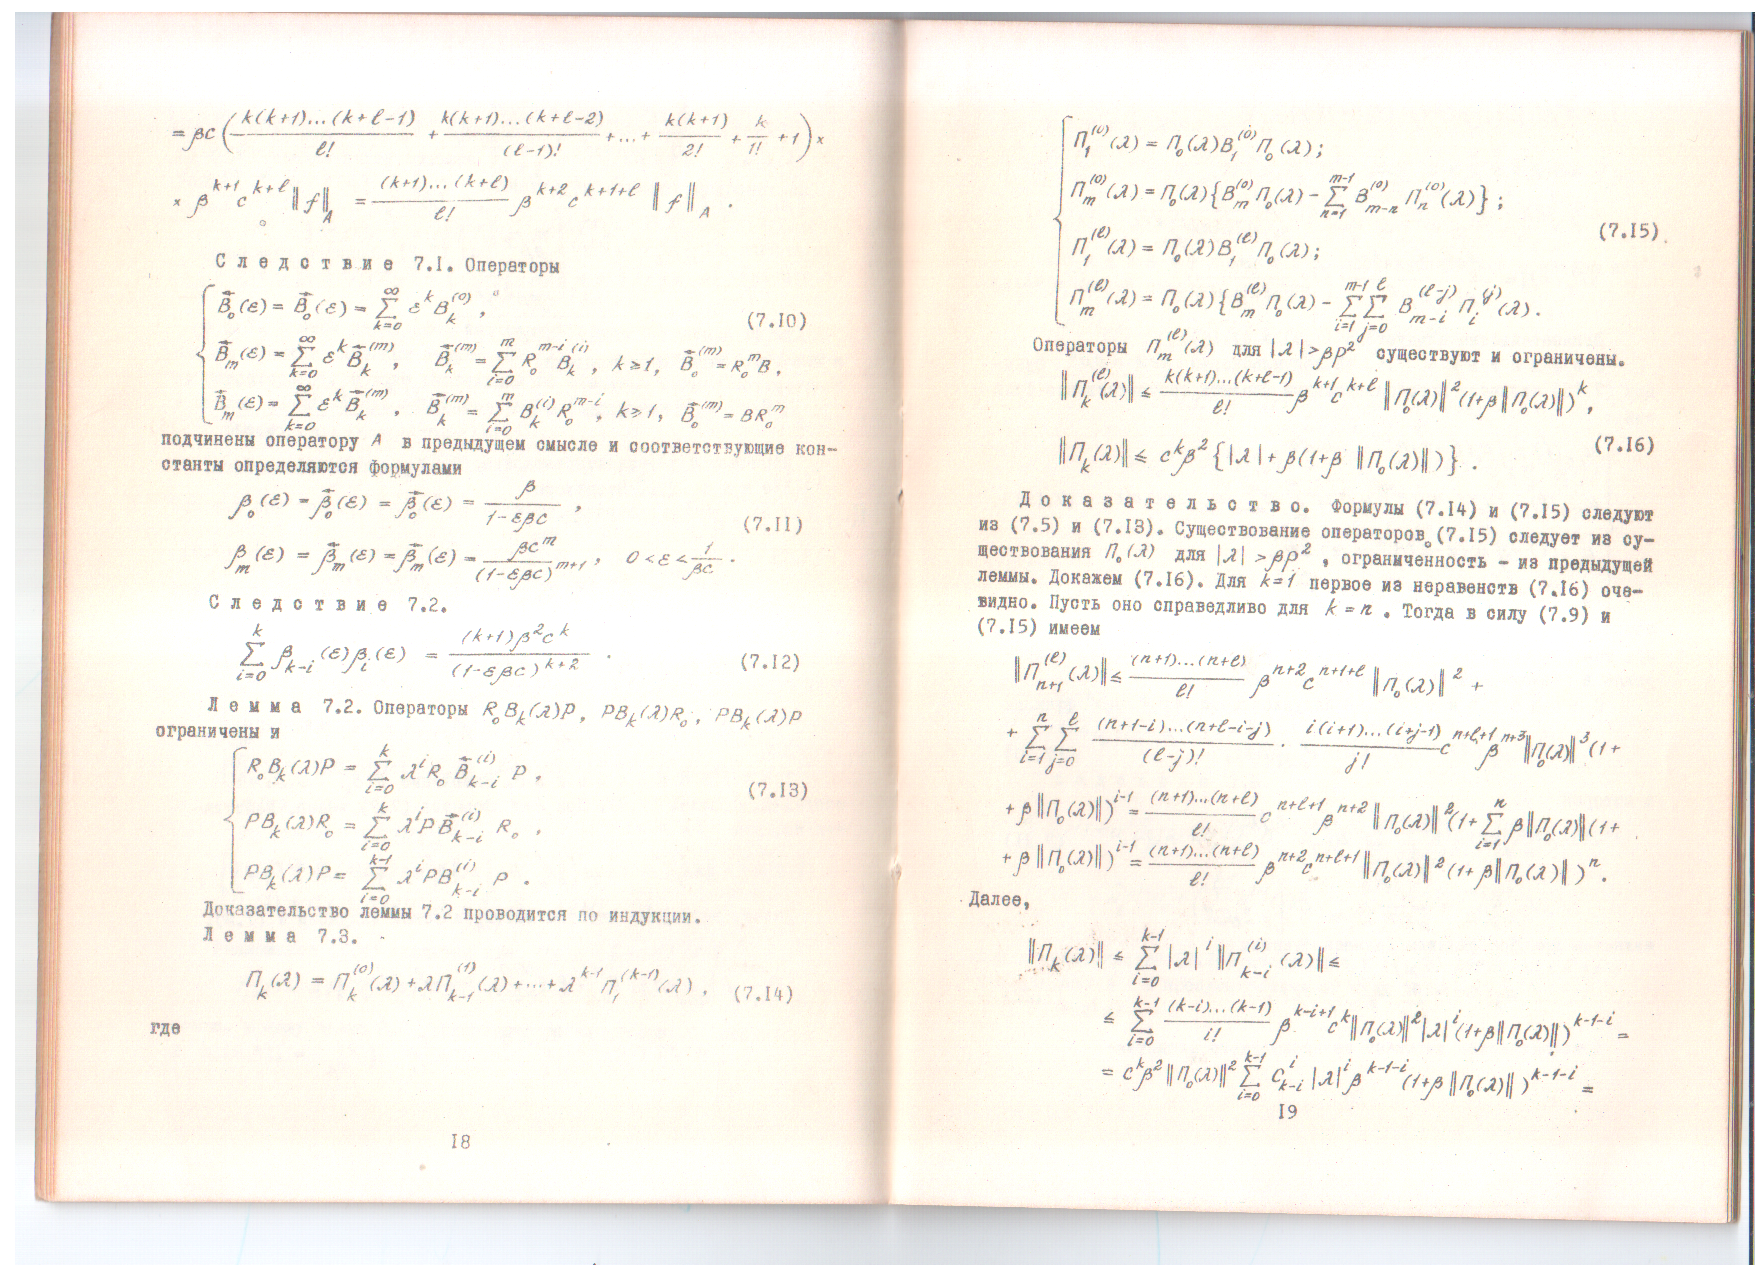 = βc ( k(k+1)...(k+ℓ-1)/ℓ! + k(k+1)...(k+ℓ-2)/(ℓ-1)! + ... + k(k+1)/2! + k/1! + 1 ) ×
× β^{k+1} c^{k+ℓ} ‖f‖_A = (k+1)...(k+ℓ)/ℓ! β^{k+2} c^{k+1+ℓ} ‖f‖_A .
Следствие 7.I. Операторы
B⃖_0(ε) = B⃗_0(ε) = Σ_{k=0}^{∞} ε^k B_k^{(0)} ,
(7.I0)
B⃖_m(ε) = Σ_{k=0}^{∞} ε^k B⃖_k^{(m)}, B⃖_k^{(m)} = Σ_{i=0}^{m} R_0^{m-i} B_k^{(i)}, k≥1, B⃖_0^{(m)} = R_0^m B,
B⃗_m(ε) = Σ_{k=0}^{∞} ε^k B⃗_k^{(m)}, B⃗_k^{(m)} = Σ_{i=0}^{m} B_k^{(i)} R_0^{m-i}, k≥1, B⃗_0^{(m)} = B R_0^m
подчинены оператору A в предыдущем смысле и соответствующие кон-
станты определяются формулами
β_0(ε) = β⃖_0(ε) = β⃗_0(ε) = β/(1-εβc) ,
(7.II)
β_m(ε) = β⃖_m(ε) = β⃗_m(ε) = βc^m/(1-εβc)^{m+1} , 0<ε<1/(βc) .
Следствие 7.2.
Σ_{i=0}^{k} β_{k-i}(ε)β_i(ε) = (k+1)β^2c^k/(1-εβc)^{k+2} . (7.I2)
Лемма 7.2. Операторы R_0B_k(λ)P, PB_k(λ)R_0, PB_k(λ)P
ограничены и
R_0B_k(λ)P = Σ_{i=0}^{k} λ^i R_0 B⃖_{k-i}^{(i)} P ,
(7.I3)
PB_k(λ)R_0 = Σ_{i=0}^{k} λ^i P B⃗_{k-i}^{(i)} R_0 ,
PB_k(λ)P = Σ_{i=0}^{k-1} λ^i P B_{k-i}^{(i)} P .
Доказательство леммы 7.2 проводится по индукции.
Лемма 7.3.
Π_k(λ) = Π_k^{(0)}(λ) + λΠ_{k-1}^{(1)}(λ) + ... + λ^{k-1} Π_1^{(k-1)}(λ) , (7.I4)
где
I8
Π_1^{(0)}(λ) = Π_0(λ)B_1^{(0)}Π_0(λ);
Π_m^{(0)}(λ) = Π_0(λ){B_m^{(0)}Π_0(λ) - Σ_{n=1}^{m-1} B_{m-n}^{(0)} Π_n^{(0)}(λ)};
(7.I5)
Π_1^{(ℓ)}(λ) = Π_0(λ)B_1^{(ℓ)}Π_0(λ);
Π_m^{(ℓ)}(λ) = Π_0(λ){B_m^{(ℓ)}Π_0(λ) - Σ_{i=1}^{m-1} Σ_{j=0}^{ℓ} B_{m-i}^{(ℓ-j)} Π_i^{(j)}(λ).
Операторы Π_m^{(ℓ)}(λ) для |λ|>βρ^2 существуют и ограничены.
‖Π_k^{(ℓ)}(λ)‖ ≤ k(k+1)...(k+ℓ-1)/ℓ! β^{k+1}c^{k+ℓ} ‖Π_0(λ)‖^2 (1+β‖Π_0(λ)‖)^k,
(7.I6)
‖Π_k(λ)‖ ≤ c^kβ^2 {|λ|+β(1+β ‖Π_0(λ)‖)} .
Доказательство. Формулы (7.I4) и (7.I5) следуют
из (7.5) и (7.I3). Существование операторов (7.I5) следует из су-
ществования Π_0(λ) для |λ| > βρ^2 , ограниченность – из предыдущей
леммы. Докажем (7.I6). Для k=1 первое из неравенств (7.I6) оче-
видно. Пусть оно справедливо для k = n . Тогда в силу (7.9) и
(7.I5) имеем
‖Π_{n+1}^{(ℓ)}(λ)‖ ≤ (n+1)...(n+ℓ)/ℓ! β^{n+2}c^{n+1+ℓ} ‖Π_0(λ)‖^2 +
+ Σ_{i=1}^{n} Σ_{j=0}^{ℓ} (n+1-i)...(n+ℓ-i-j)/(ℓ-j)! · i(i+1)...(i+j-1)/j! c^{n+ℓ+1} β^{n+3} ‖Π_0(λ)‖^3 (1+
+ β‖Π_0(λ)‖)^{i-1} = (n+1)...(n+ℓ)/ℓ! c^{n+ℓ+1} β^{n+2} ‖Π_0(λ)‖^2 (1+ Σ_{i=1}^{n} β‖Π_0(λ)‖(1+
+ β‖Π_0(λ)‖)^{i-1} = (n+1)...(n+ℓ)/ℓ! β^{n+2}c^{n+ℓ+1} ‖Π_0(λ)‖^2 (1+β‖Π_0(λ)‖)^n.
Далее,
‖Π_k(λ)‖ ≤ Σ_{i=0}^{k-1} |λ|^i ‖Π_{k-i}^{(i)}(λ)‖ ≤
≤ Σ_{i=0}^{k-1} (k-i)...(k-1)/i! β^{k-i+1} c^k ‖Π_0(λ)‖^2 |λ|^i (1+β‖Π_0(λ)‖)^{k-1-i} =
= c^kβ^2 ‖Π_0(λ)‖^2 Σ_{i=0}^{k-1} C_{k-i}^{i} |λ|^i β^{k-1-i} (1+β ‖Π_0(λ)‖)^{k-1-i} =
I9